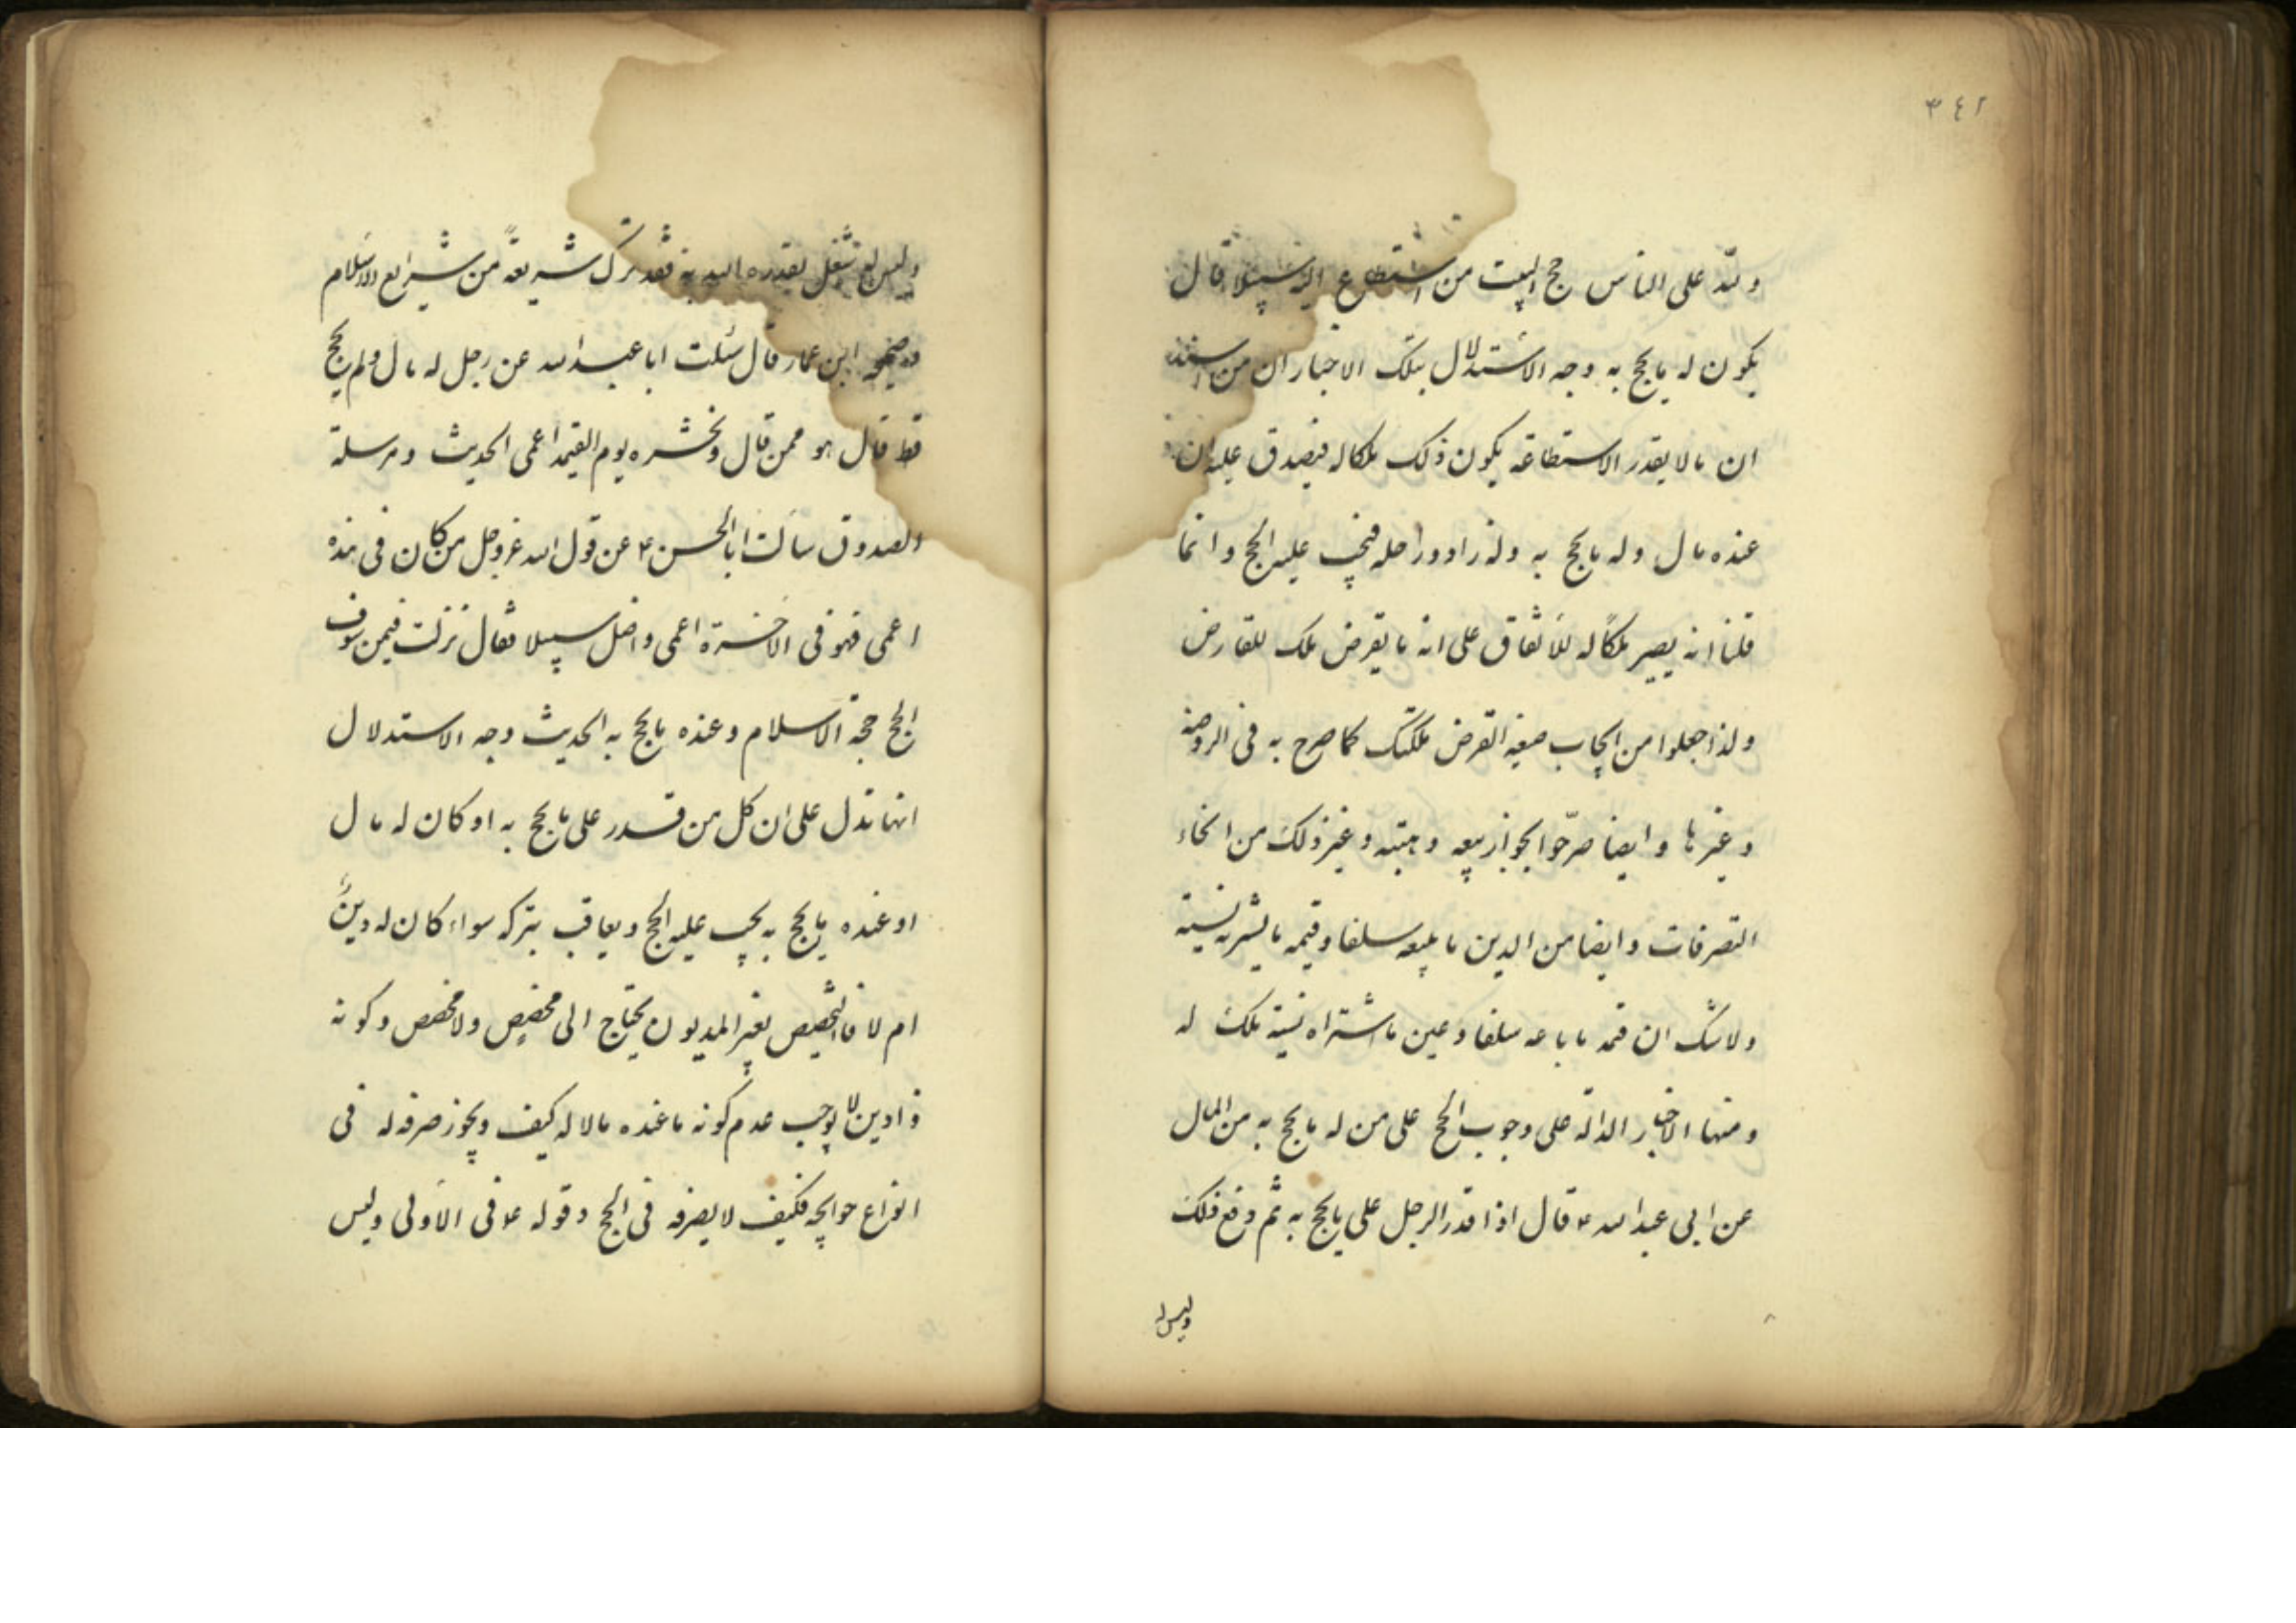 ٣٤٢
ولله على الناس حج البيت من استطاع اليه سبيلا قال
يكون له ما يحج به وجه الاستدلال بتلك الاخبار ان من
ان مالا بقدر الاستطاعة يكون ذلك ملكا له فيصدق عليه ان
عنده مال وله ما يحج به وله زاد وراحله فيجب عليه الحج وانما
قلنا انه يصير ملكا له للاتفاق على انه ما يقرض ملك للقارض
ولذا جعلوا من ايجاب صيغة القرض ملكتك كما صرح به فى الروضه
و غيرها و ايضا صرّحوا بجواز بيعه و هبته و غير ذلك من انحاء
التصرفات و ايضا من الدين ما يبيعه سلفا و قيمه ما يشتريه نسية
ولا شك ان قيمه ما باعه سلفا و عين ما اشتراه نسية ملك له
و منها الاخبار الدالة على وجوب الحج على من له ما يحج به من المال
عن ابى عبد الله ع قال اذا قدر الرجل على ما يحج به ثم دفع ذلك
وليس له
وليس له شغل يعذره الله به فقد ترك شريعة من شرايع الاسلام
ابن عمار قال سئلت ابا عبد الله عن رجل له مال ولم يحج
قط قال هو ممن قال ونحشره يوم القيمة اعمى الحديث و مرسلة
الصدوق سالت ابا الحسن ع عن قول الله عز وجل من كان فى هذه
اعمى فهو فى الاخرة اعمى و اضل سبيلا فقال نزلت فيمن سوف
الحج حجة الاسلام و عنده ما يحج به الحديث وجه الاستدلال
انها تدل على ان كل من قدر على ما يحج به او كان له مال
او عنده ما يحج به يجب عليه الحج و يعاقب بتركه سواء كان له دينٌ
ام لا فالتخصيص بغير المديون يحتاج الى مخصص ولا مخصص و كونه
ذا دين لا يوجب عدم كونه ما عنده مالا له كيف و يجوز صرفه له فى
انواع حوايجه فكيف لا يصرفه فى الحج و قوله ع فى الاولى وليس